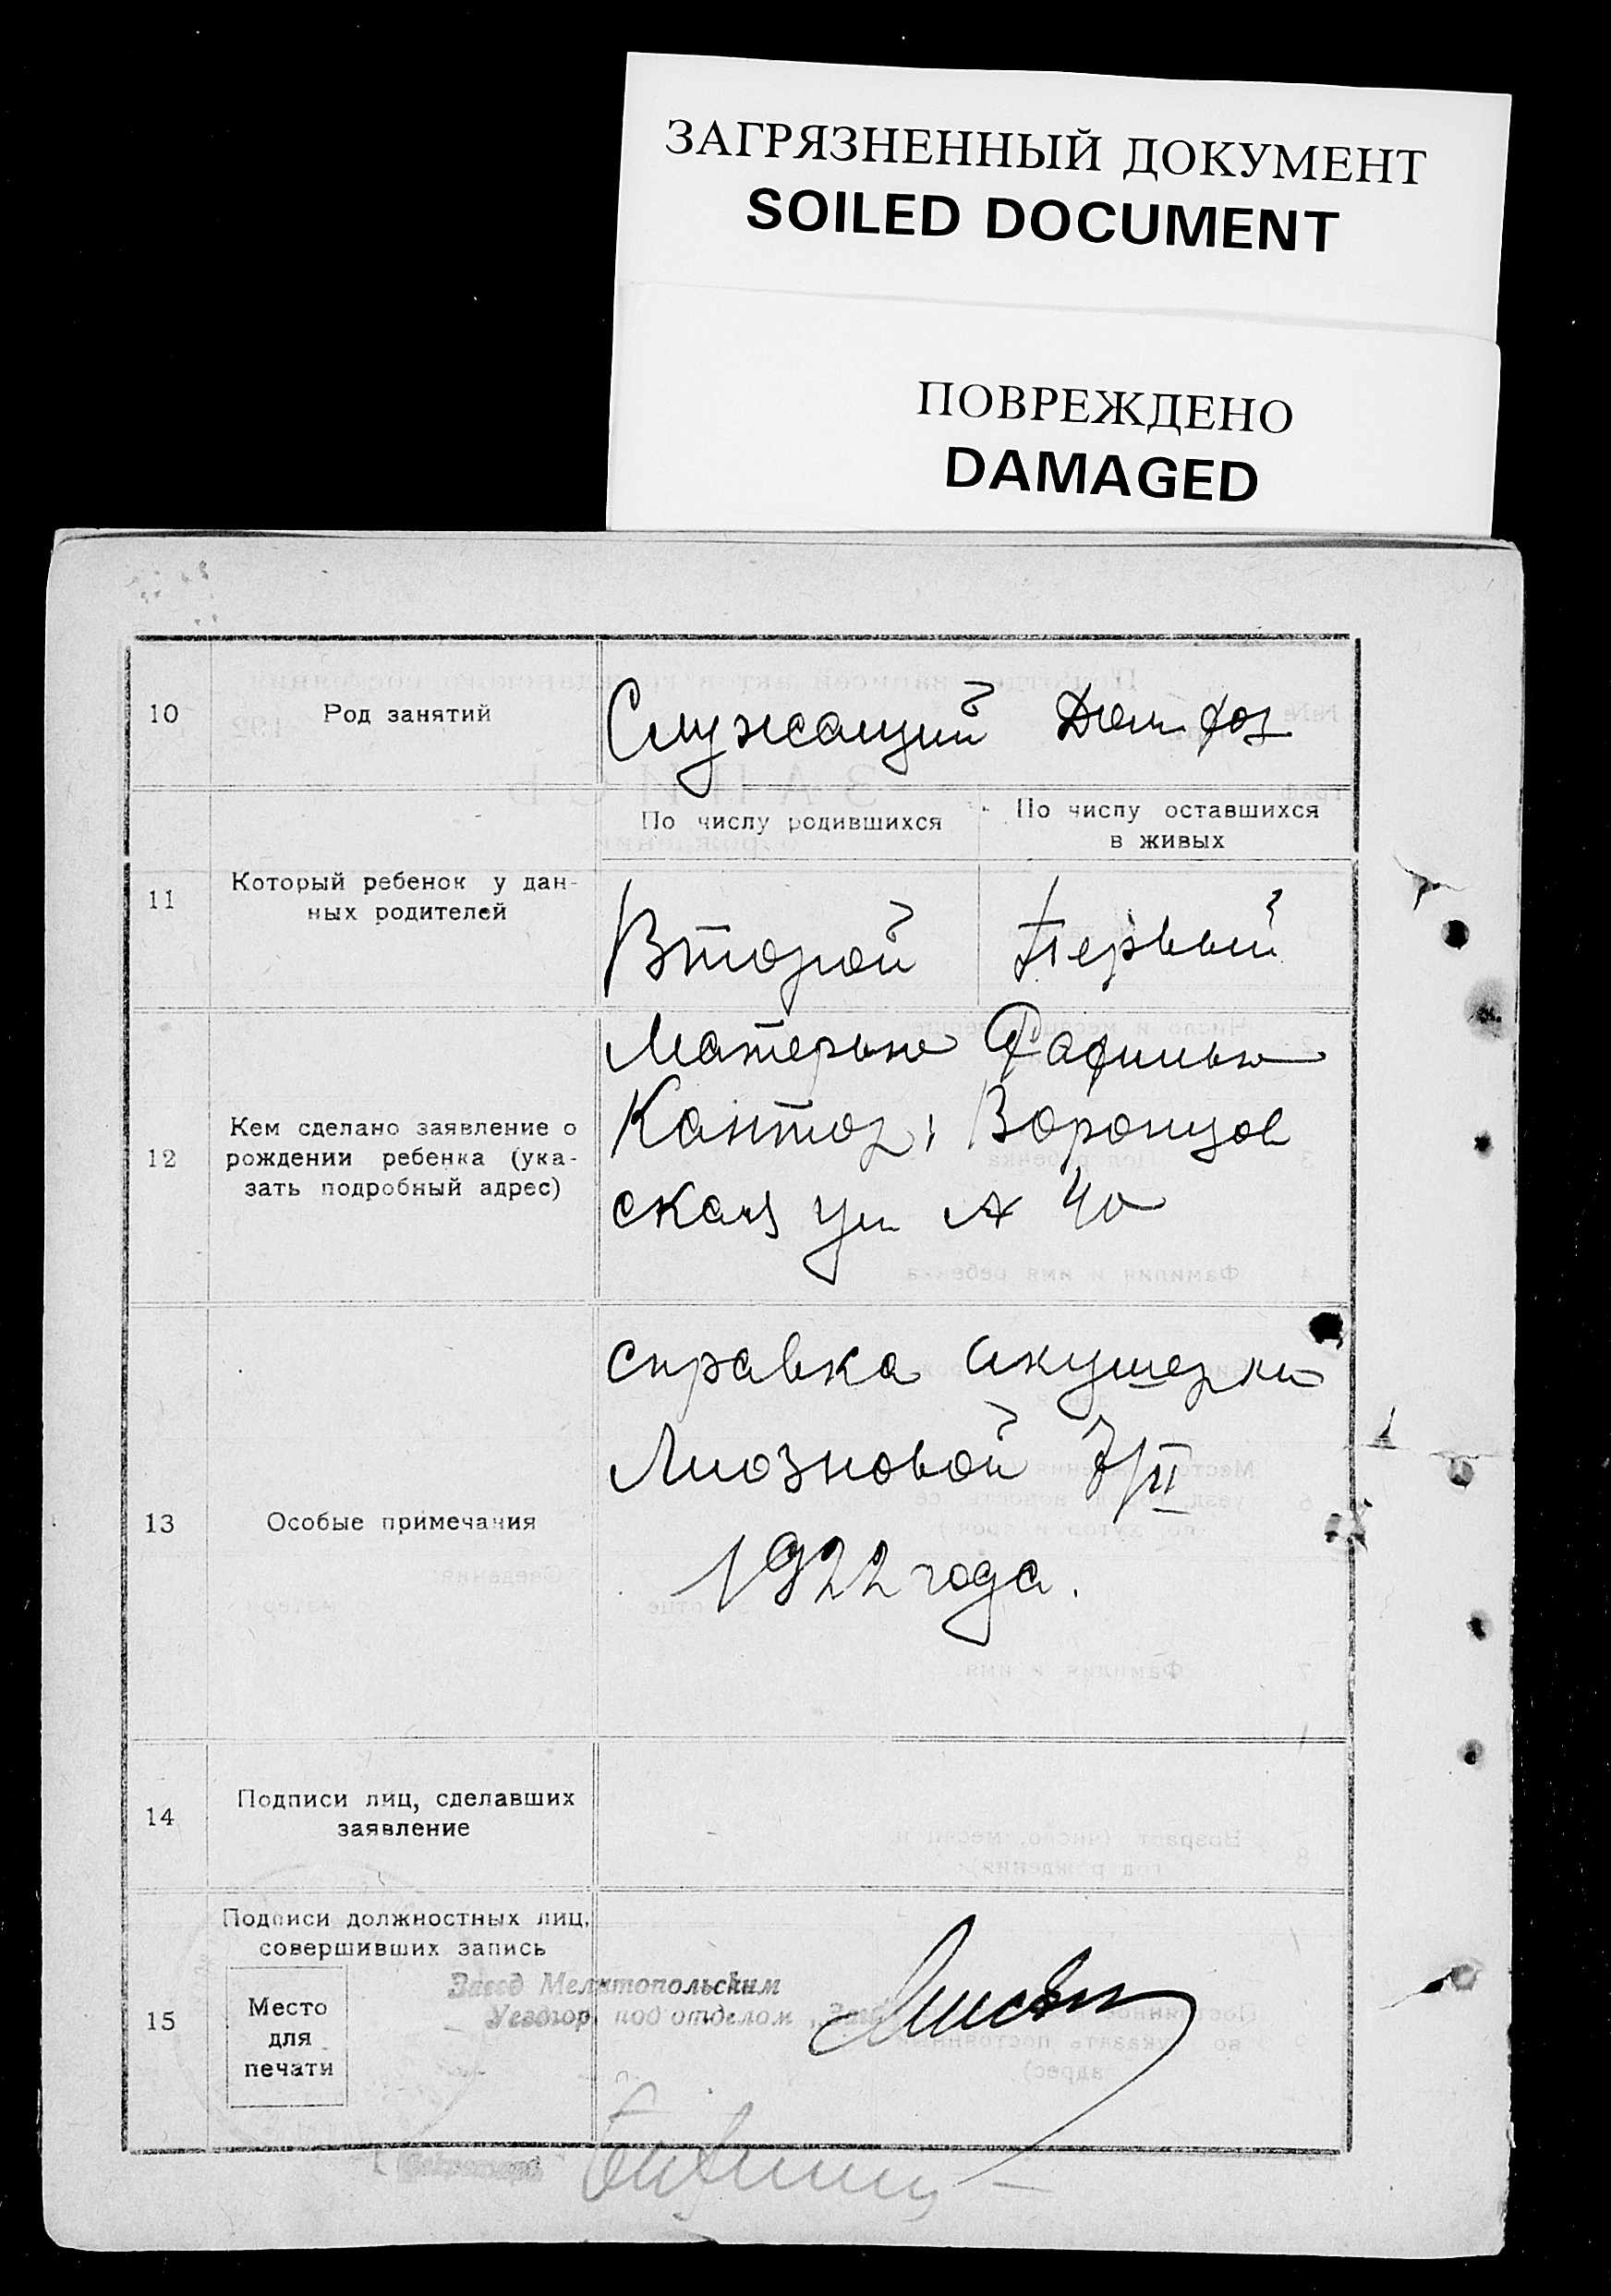 ЗАГРЯЗНЕННЫЙ ДОКУМЕНТ
SOILED DOCUMENT
ПОВРЕЖДЕНО
DAMAGED
10
Род занятий
Служащий
11
Который ребенок у дан-
ных родителей
По числу родившихся
По числу оставшихся
в живых
Второй
Первый
12
Кем сделано заявление о
рождении ребенка (ука-
зать подробный адрес)
Матерью
Кантор, Воронцов
ская ул № 40
13
Особые примечания
справка акушерки
Лиозновой 7/II
1922 года.
14
Подписи лиц, сделавших
заявление
15
Подписи должностных лиц,
совершивших запись
Место
для
печати
Завед Мелитопольским
Уездгор. под отделом